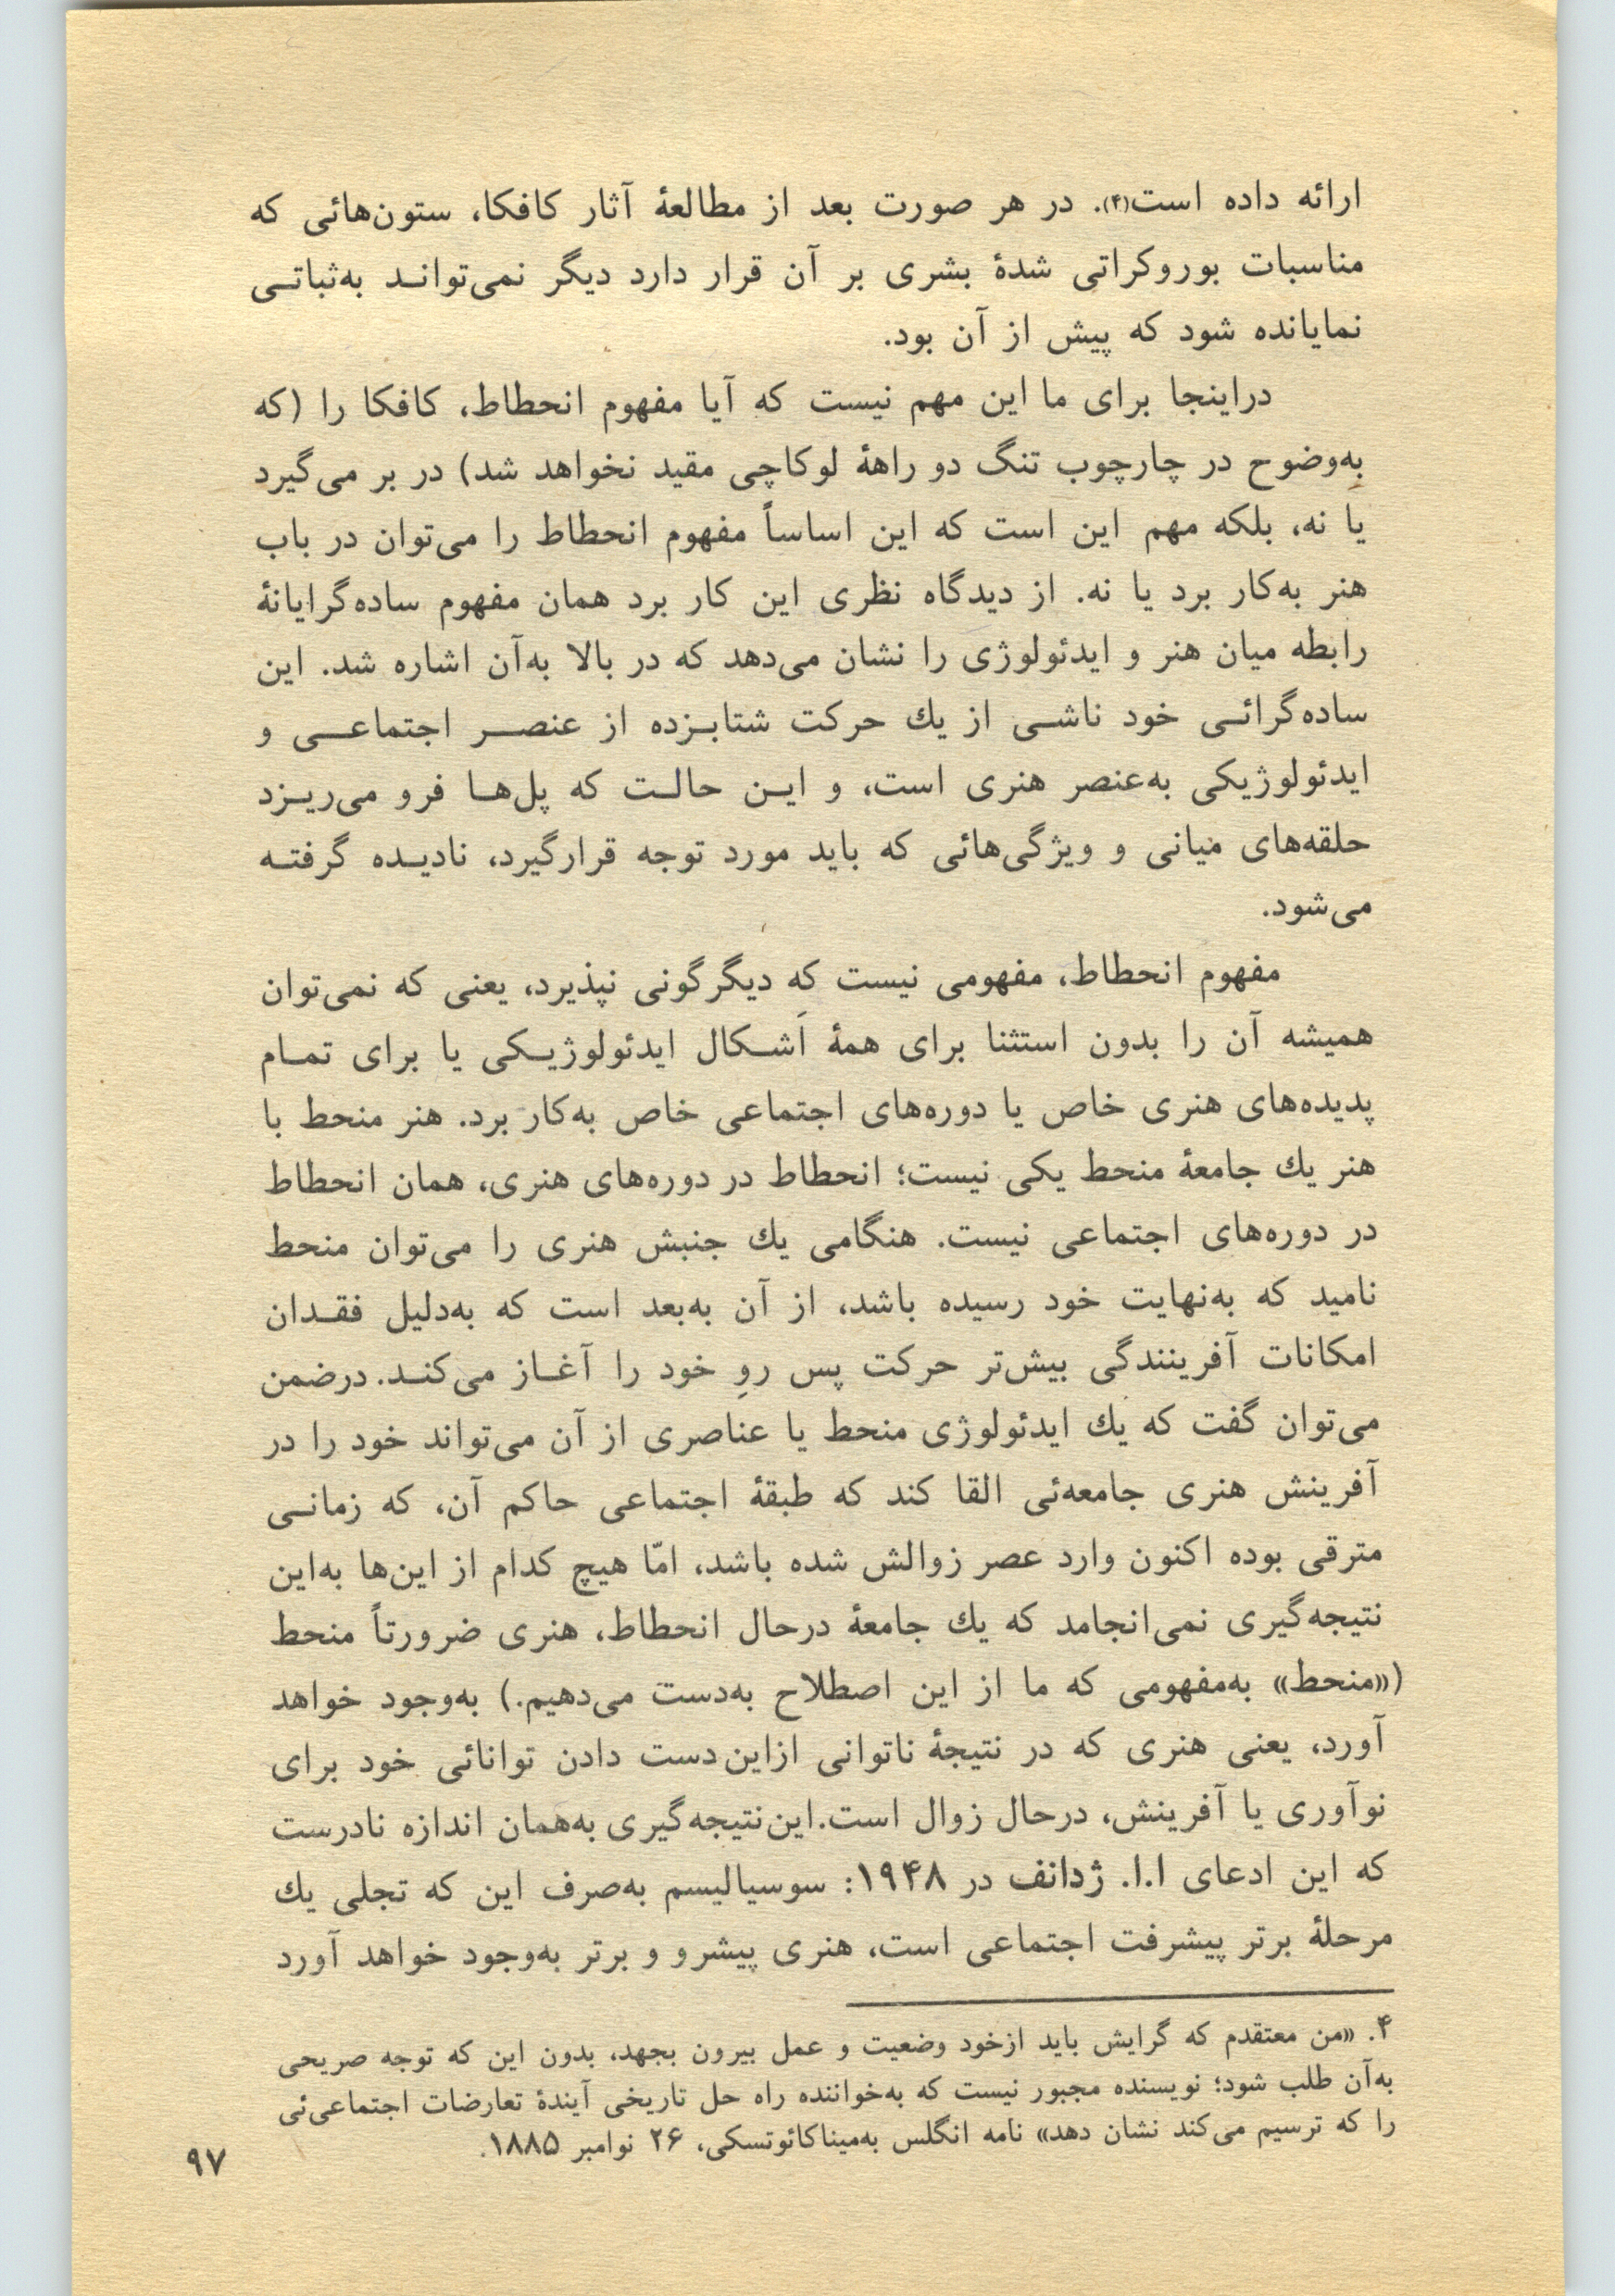 ارائه داده است(۴). در هر صورت بعد از مطالعهٔ آثار کافکا، ستون‌هائی که
مناسبات بوروکراتی شدهٔ بشری بر آن قرار دارد دیگر نمی‌توانـد به‌ثباتـی
نمایانده شود که پیش از آن بود.
دراینجا برای ما این مهم نیست که آیا مفهوم انحطاط، کافکا را (که
به‌وضوح در چارچوب تنگ دو راههٔ لوکاچی مقید نخواهد شد) در بر می‌گیرد
یا نه، بلکه مهم این است که این اساساً مفهوم انحطاط را می‌توان در باب
هنر به‌کار برد یا نه. از دیدگاه نظری این کار برد همان مفهوم ساده‌گرایانهٔ
رابطه میان هنر و ایدئولوژی را نشان می‌دهد که در بالا به‌آن اشاره شد. این
ساده‌گرائـی خود ناشـی از یك حرکت شتابـزده از عنصـر اجتماعـی و
ایدئولوژیکی به‌عنصر هنری است، و ایـن حالـت که پل‌هـا فرو می‌ریـزد
حلقه‌های میانی و ویژگی‌هائی که باید مورد توجه قرارگیرد، نادیـده گرفتـه
می‌شود.
مفهوم انحطاط، مفهومی نیست که دیگرگونی نپذیرد، یعنی که نمی‌توان
همیشه آن را بدون استثنا برای همهٔ اَشـکال ایدئولوژیـکی یا برای تمـام
پدیده‌های هنری خاص یا دوره‌های اجتماعی خاص به‌کار برد. هنر منحط با
هنر یك جامعهٔ منحط یکی نیست؛ انحطاط در دوره‌های هنری، همان انحطاط
در دوره‌های اجتماعی نیست. هنگامی یك جنبش هنری را می‌توان منحط
نامید که به‌نهایت خود رسیده باشد، از آن به‌بعد است که به‌دلیل فقـدان
امکانات آفرینندگی بیش‌تر حرکت پس روِ خود را آغـاز می‌کنـد. درضمن
می‌توان گفت که یك ایدئولوژی منحط یا عناصری از آن می‌تواند خود را در
آفرینش هنری جامعه‌ئی القا کند که طبقهٔ اجتماعی حاکم آن، که زمانـی
مترقی بوده اکنون وارد عصر زوالش شده باشد، امّا هیچ کدام از این‌ها به‌این
نتیجه‌گیری نمی‌انجامد که یك جامعهٔ درحال انحطاط، هنری ضرورتاً منحط
(«منحط» به‌مفهومی که ما از این اصطلاح به‌دست می‌دهیم.) به‌وجود خواهد
آورد، یعنی هنری که در نتیجهٔ ناتوانی ازاین‌دست دادن توانائی خود برای
نوآوری یا آفرینش، درحال زوال است. این‌نتیجه‌گیری به‌همان اندازه نادرست
که این ادعای ا.ا. ژدانف در ۱۹۴۸: سوسیالیسم به‌صرف این که تجلی یك
مرحلهٔ برتر پیشرفت اجتماعی است، هنری پیشرو و برتر به‌وجود خواهد آورد
۴. «من معتقدم که گرایش باید ازخود وضعیت و عمل بیرون بجهد، بدون این که توجه صریحی
به‌آن طلب شود؛ نویسنده مجبور نیست که به‌خواننده راه حل تاریخی آیندهٔ تعارضات اجتماعی‌ئی
را که ترسیم می‌کند نشان دهد» نامه انگلس به‌میناکائوتسکی، ۲۶ نوامبر ۱۸۸۵.
۹۷